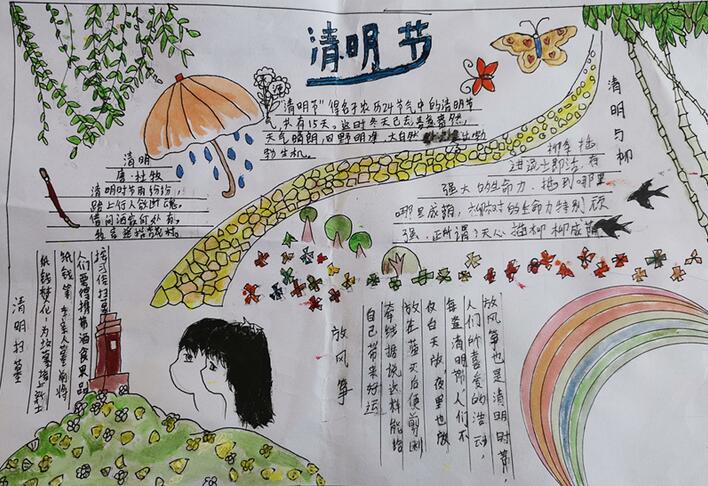 清明节
"清明节"得名于农历24节气中的清明节
气,共有15天。这时冬天已去,春意盎然,
天气晴朗,四野明净,大自然生机勃
勃生机。
清明
唐·杜牧
清明时节雨纷纷,
路上行人欲断魂。
借问酒家何处有,
牧童遥指杏花村。
清明与柳
柳条插
进泥土即活,有
强大的生命力,插到哪里
哪里成荫,柳树的生命力特别顽
强,正所谓:无心插柳柳成荫
清明扫墓
按习俗扫墓
人们要携带酒食果品
纸钱等 亲人墓前将
纸钱焚化,为坟墓培上新土
放风筝
放风筝也是清明时节,
人们所喜爱的活动,
每逢清明节,人们不
仅白天放,夜里也放
放在蓝天后便剪断
牵线据说这样能给
自己带来好运